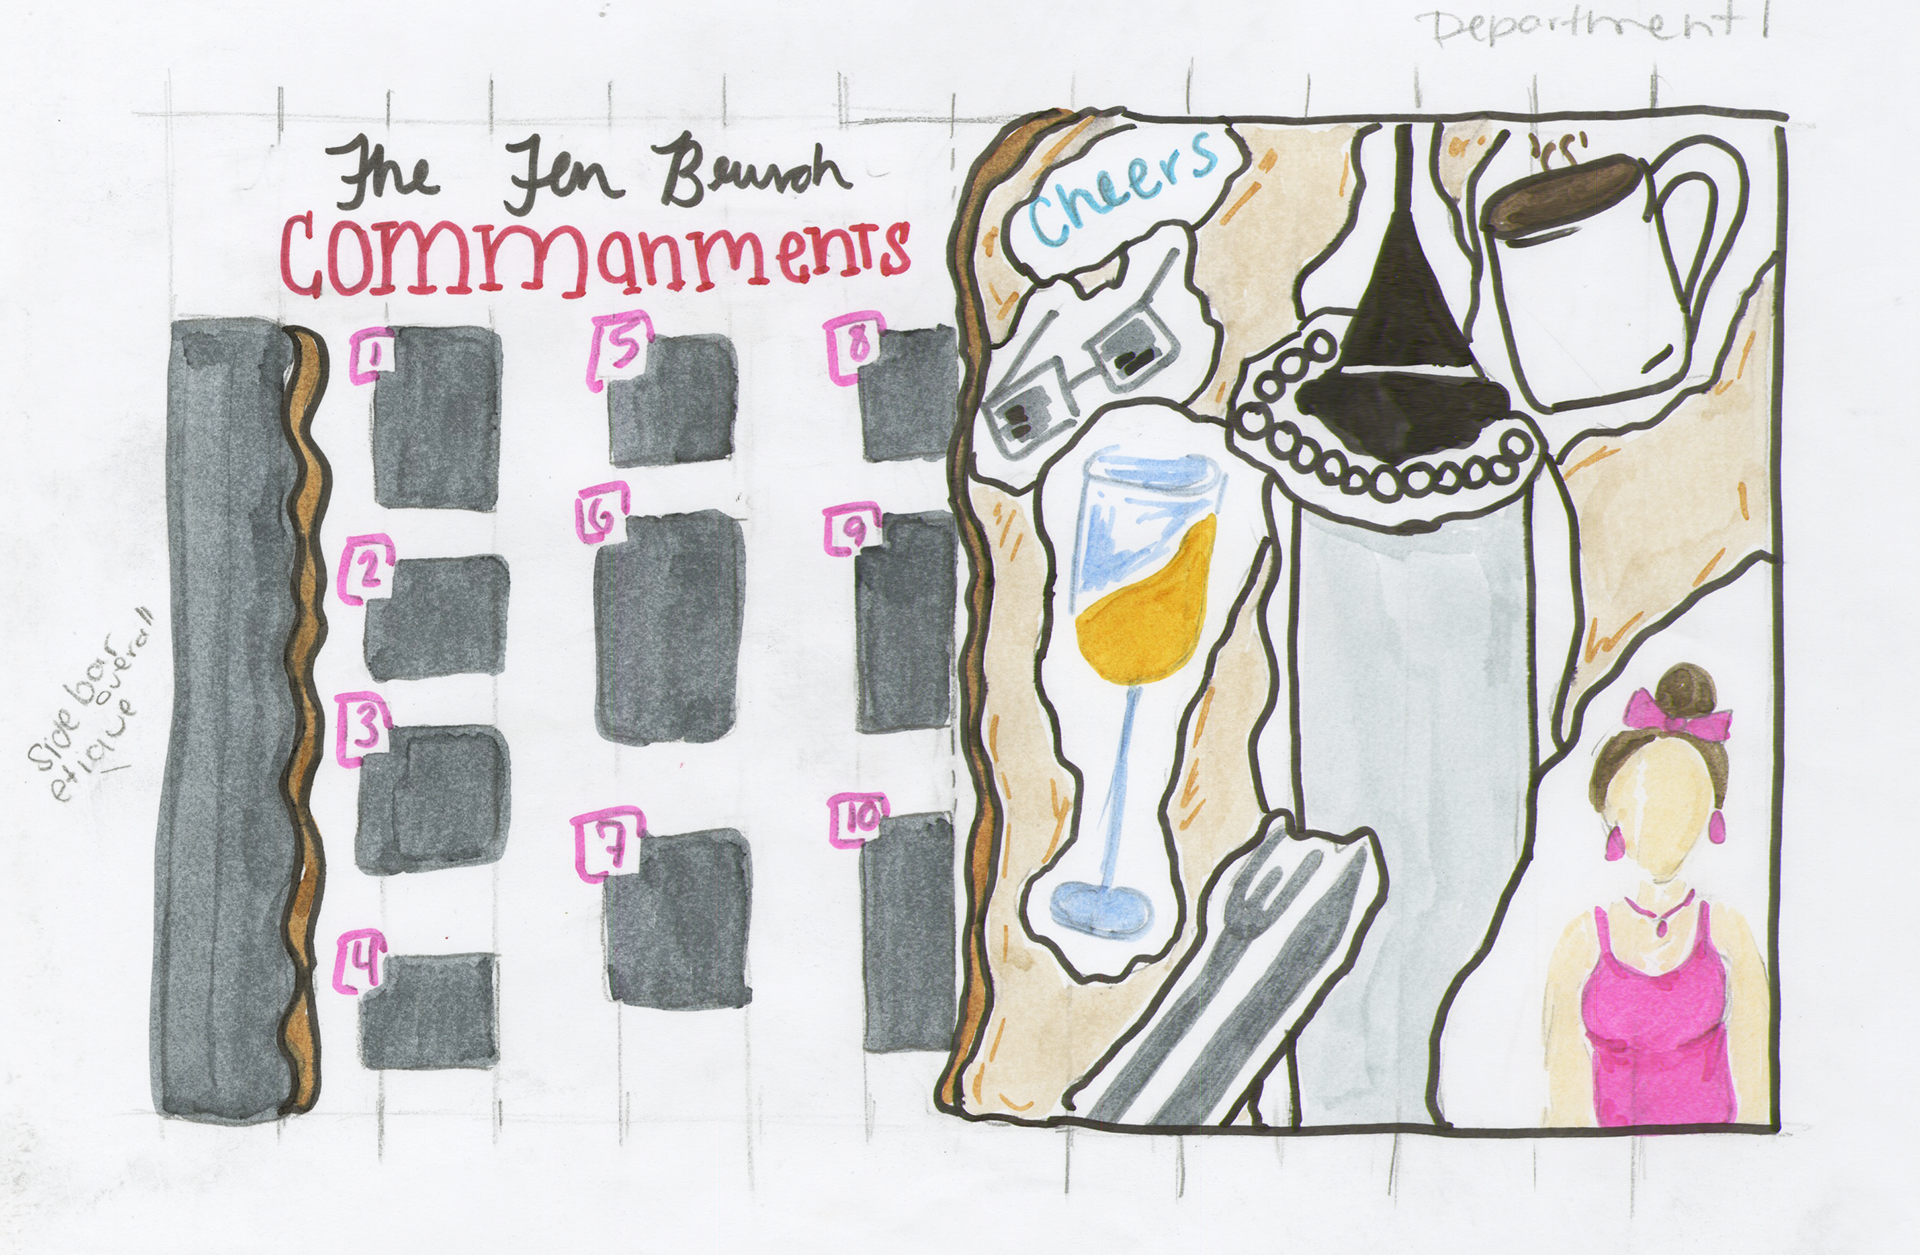 Department 1
The Ten Brunch
Commanments
Cheers
1
2
3
4
5
6
7
8
9
10
Side bar
etique overall